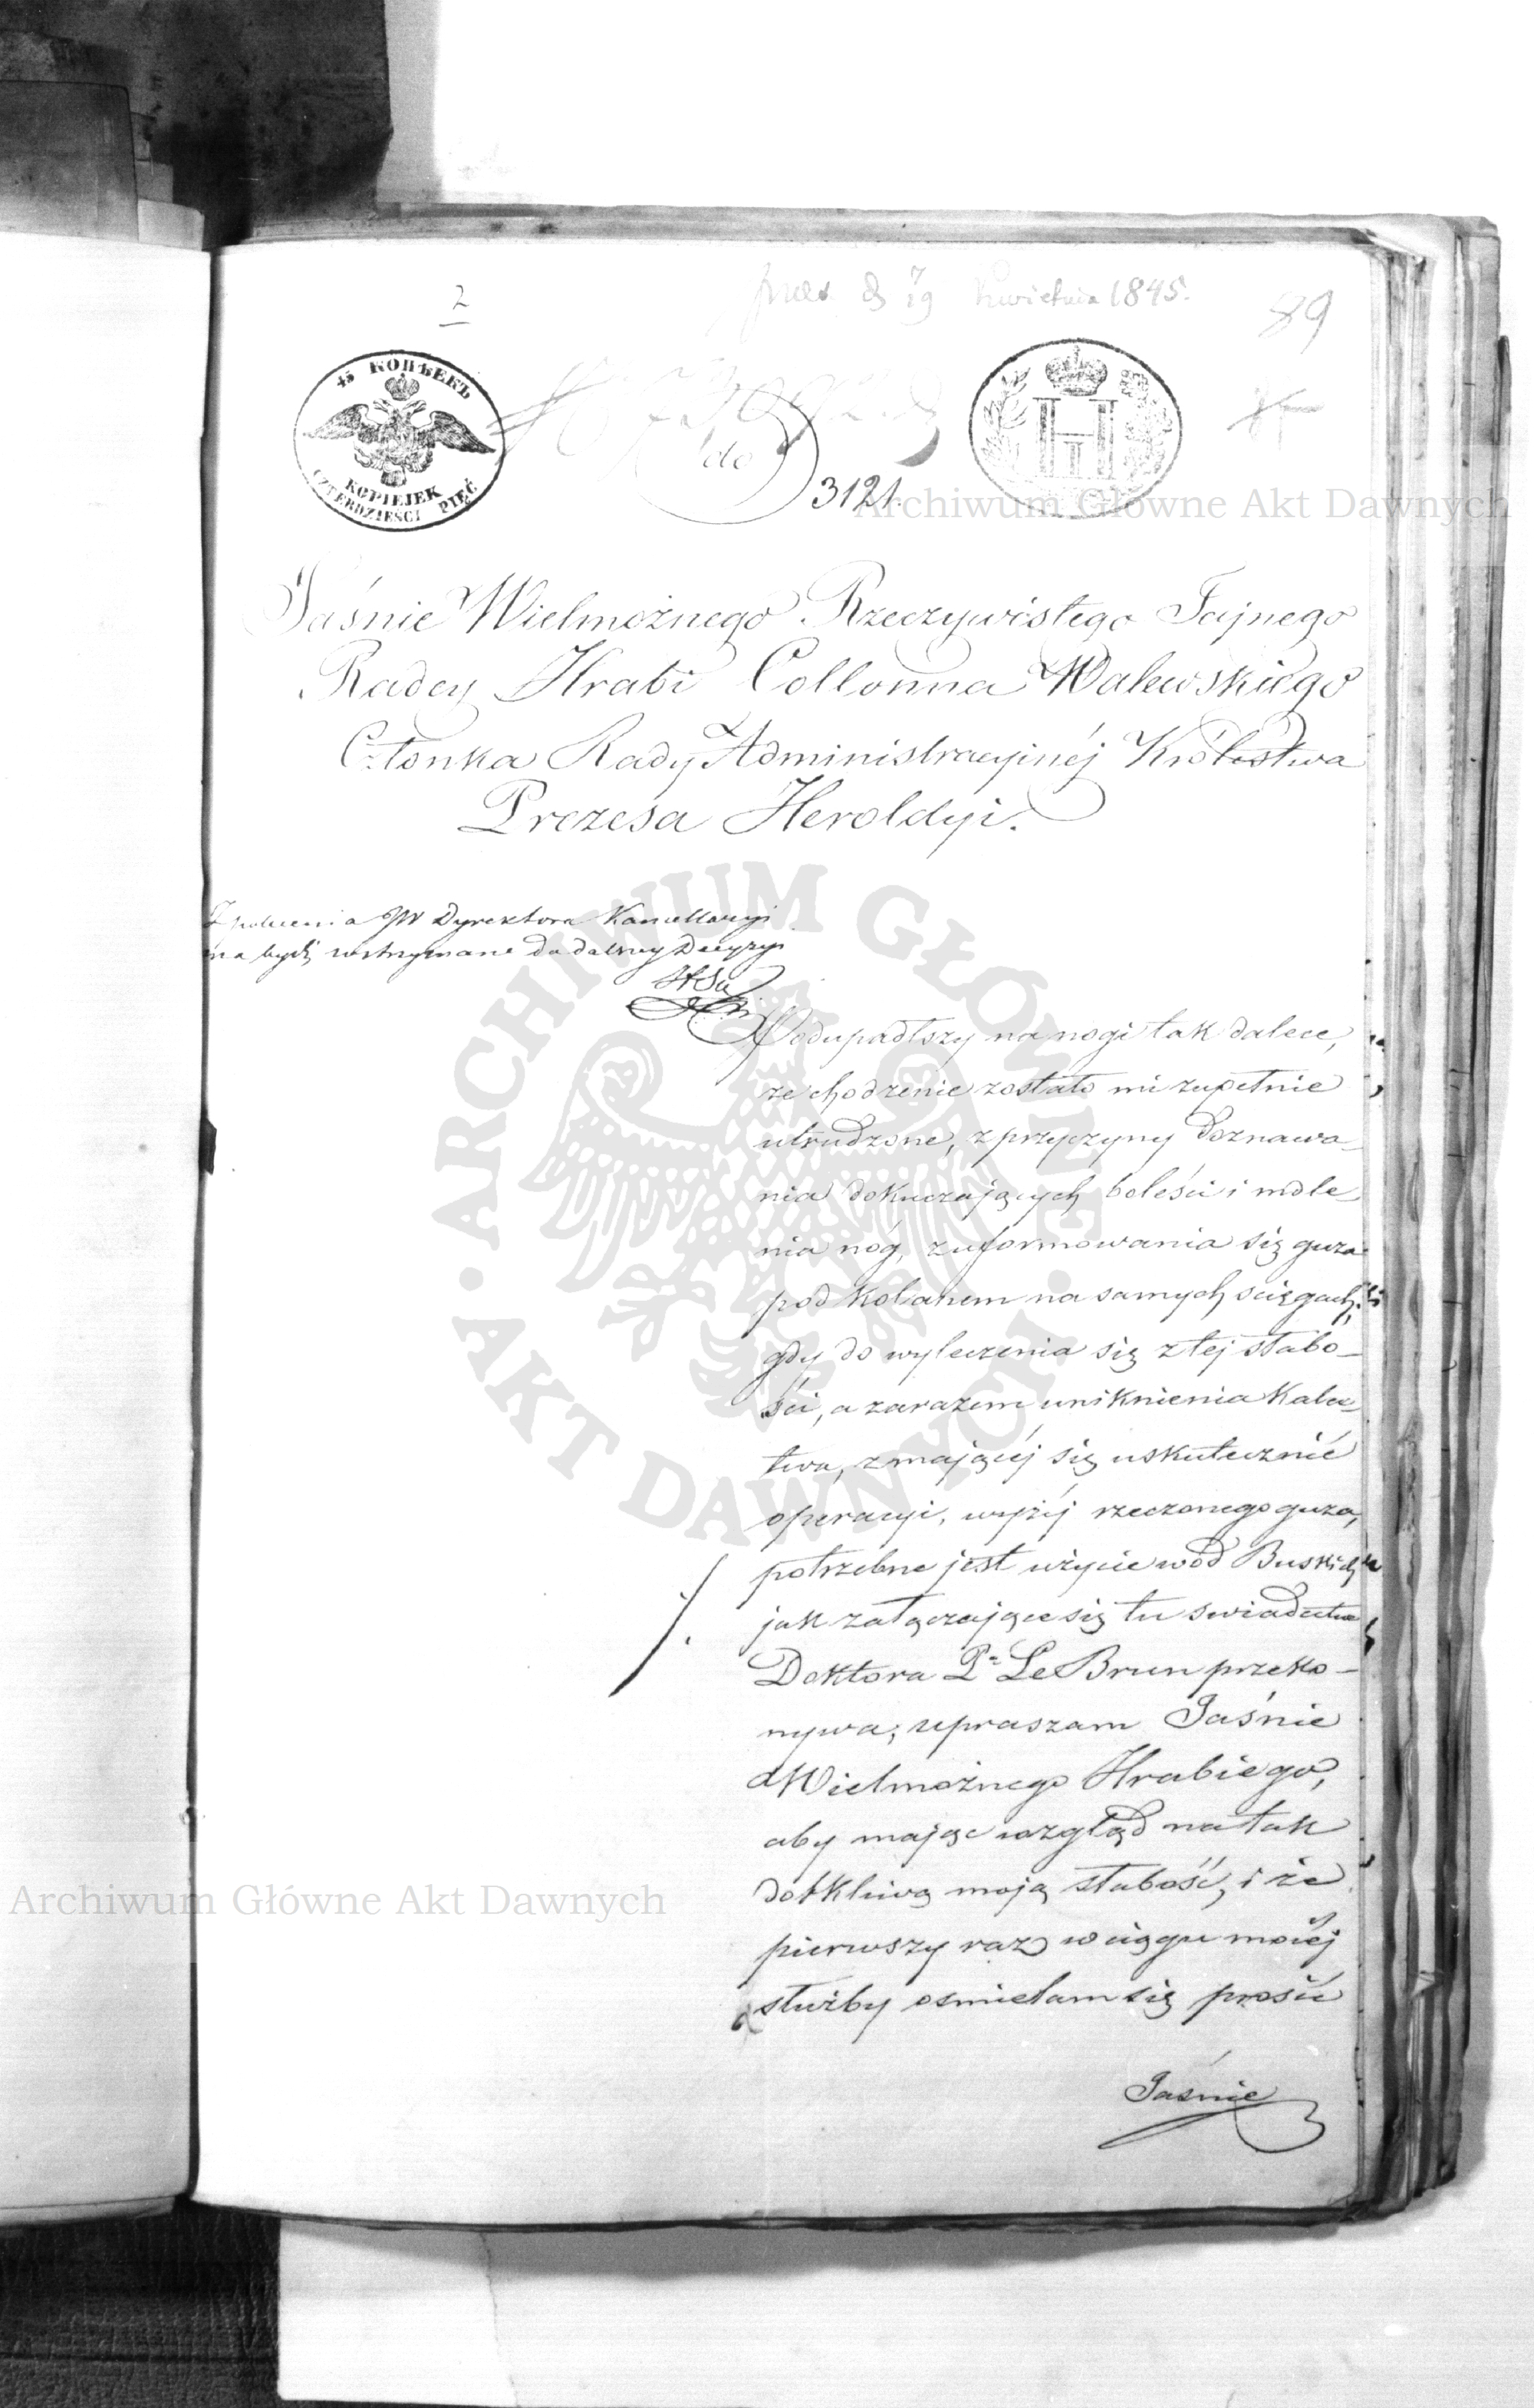 2
89
prez d 7/19 Kwietnia 1845.
45 КОПѢЕКЪ
KOPIEJEK
CZTERDZIEŚCI PIĘĆ
do
3121.
Archiwum Główne Akt Dawnych
Jaśnie Wielmożnego Rzeczywistego Tajnego
Radcy Hrabi Collonna Walewskiego
Członka Rady Administracyjnéj Królestwa
Prezesa Heroldyi.
Z polecenia JW Dyrektora Kancellaryi
ma bydź wstrzymane do dalszey Decyzyi
ARCHIWUM GŁÓWNE
AKT DAWNYCH
Podupadłszy na nogi tak dalece,
że chodzenie zostało mi zupełnie
utrudzone, z przyczyny doznawa-
nia dokuczających boleści i mdle-
nia nóg, zuformowania się guza
pod kolanem na samych ścięgach,
gdy do wyleczenia się z tej słabo-
ści, a zarazem uniknienia kalec-
twa, z mającéj się uskutecznić
operacyi, wyżéj rzeczonego guza,
potrzebne jest użycie wód Buskich
jak załączające się tu swiadectwo
Doktora Pa Le Brun przeko-
nywa; upraszam Jaśnie
Wielmożnego Hrabiego,
aby mając wzgląd na tak
dotkliwą moją słabość, i że
pierwszy raz w ciągu moiéj
służby osmielam się prosić
Jaśnie
Archiwum Główne Akt Dawnych